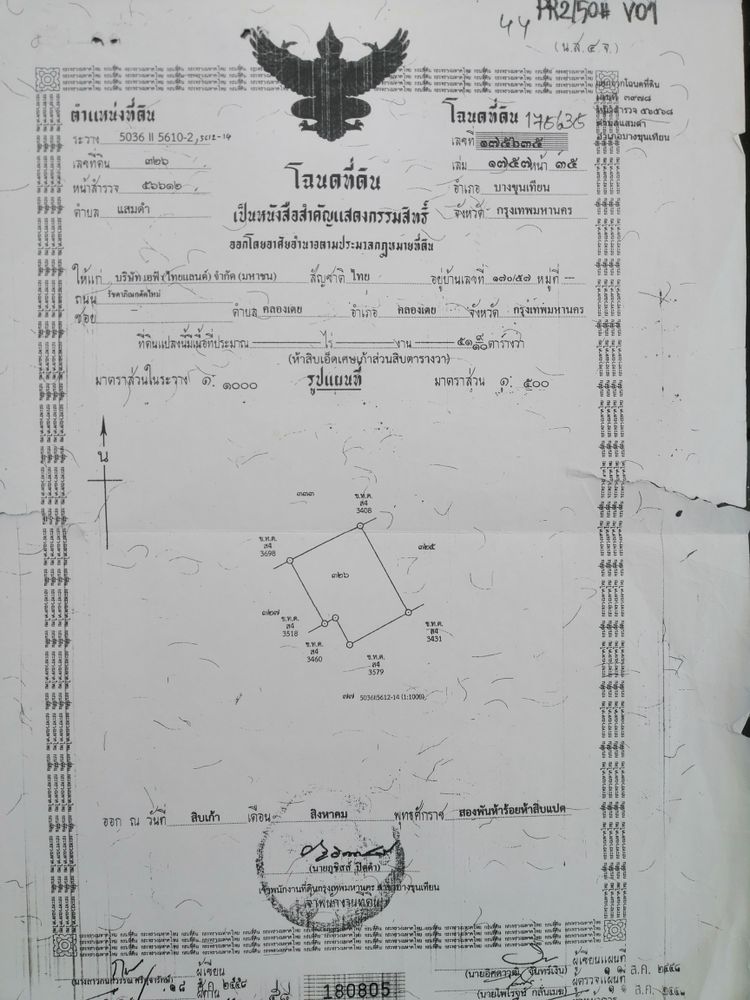 PR2/50# V01
44
(น.ส.๔ จ.)
ตำแหน่งที่ดิน
ระวาง 5036 II 5610-2, 5612-14
เลขที่ดิน ๓๒๖
หน้าสำรวจ ๕๖๖๑๒
ตำบล แสมดำ
โฉนดที่ดิน 175635
เลขที่ ๑๗๕๖๓๕
เล่ม ๑๗๕๗ หน้า ๓๕
อำเภอ บางขุนเทียน
จังหวัด กรุงเทพมหานคร
แยกจากโฉนดที่ดิน
เลขที่ ๓๙๗๘
หน้าสำรวจ ๕๖๕๖๘
ตำบลแสมดำ
อำเภอบางขุนเทียน
โฉนดที่ดิน
เป็นหนังสือสำคัญแสดงกรรมสิทธิ์
ออกโดยอาศัยอำนาจตามประมวลกฎหมายที่ดิน
ให้แก่ บริษัท เอพี (ไทยแลนด์) จำกัด (มหาชน) สัญชาติ ไทย อยู่บ้านเลขที่ ๑๗๐/๕๗ หมู่ที่ —
ถนน รัชดาภิเษกตัดใหม่
ซอย ตำบล คลองเตย อำเภอ คลองเตย จังหวัด กรุงเทพมหานคร
ที่ดินแปลงนี้มีเนื้อที่ประมาณ ไร่ งาน ๕๑ ๙/๑๐ ตารางวา
(ห้าสิบเอ็ดเศษเก้าส่วนสิบตารางวา)
มาตราส่วนในระวาง ๑: ๑๐๐๐ รูปแผนที่ มาตราส่วน ๑: ๕๐๐
น
๓๓๓
ข.ท.ด.
ส4
3408
ข.ท.ด.
ส4
3698
๓๒๕
๓๒๖
๓๒๗
ข.ท.ด.
ส4
3518
ข.ท.ด.
ส4
3460
ข.ท.ด.
ส4
3431
ข.ท.ด.
ส4
3579
๗๗ 5036II5612-14 (1:1000)
ออก ณ วันที่ สิบเก้า เดือน สิงหาคม พุทธศักราช สองพันห้าร้อยห้าสิบแปด
เจ้าพนักงานที่ดินกรุงเทพมหานคร สาขาบางขุนเทียน
เจ้าพนักงานที่ดิน
ผู้เขียน
๑๘ ส.ค. ๒๕๕๘
ผู้ทาน
180805
ผู้เขียนแผนที่
ส.ค. ๒๕๕๘
ผู้ตรวจแผนที่
(นายไพโรจน์ กลั่นเมฆ)